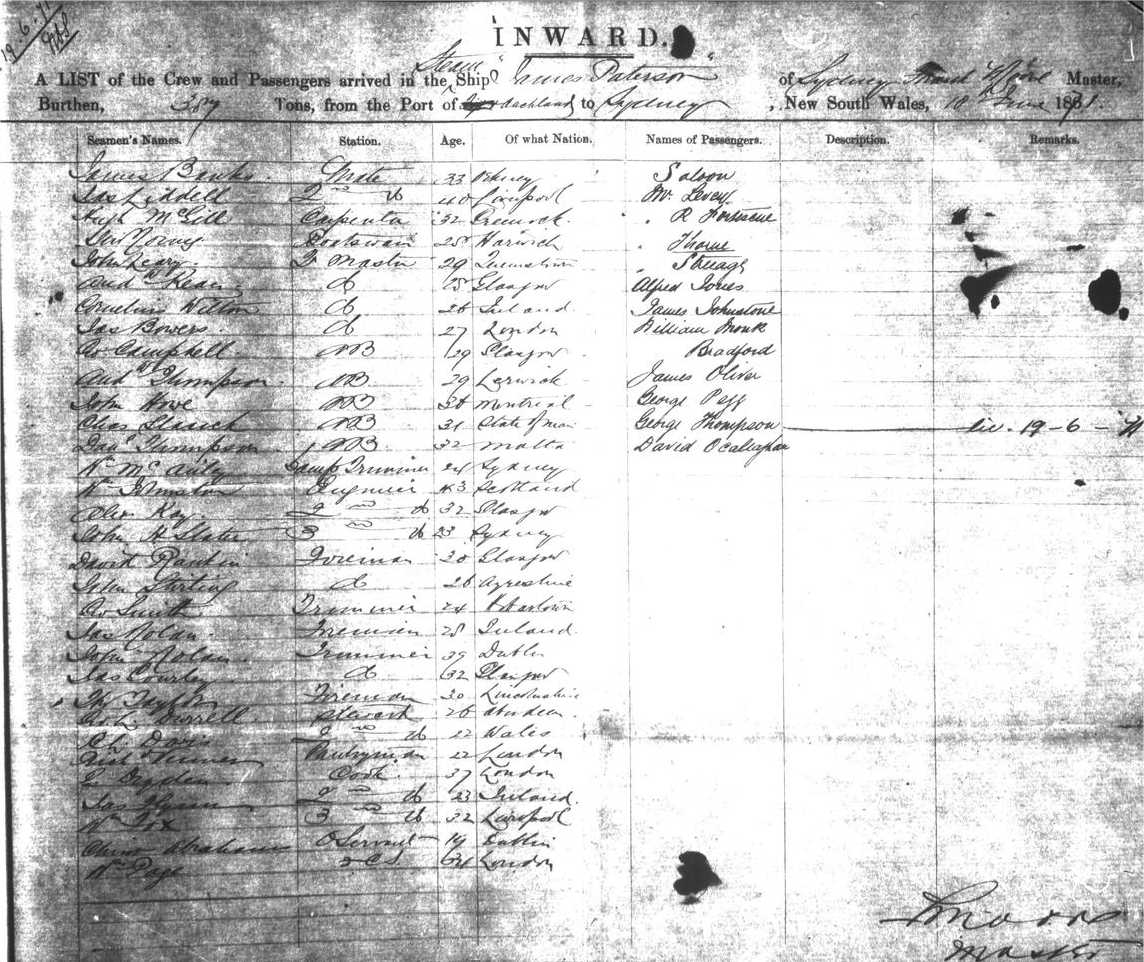 19.6.71
INWARD.
A LIST of the Crew and Passengers arrived in the Steam Ship "James Paterson" of Sydney Master,
Burthen, Tons, from the Port of to Sydney, New South Wales, June 1871.
Seamen's Names. Station. Age. Of what Nation. Names of Passengers. Description. Remarks.
James Banks Mate 33 Orkney Saloon
Jas Liddell 2nd do 40 Liverpool Mr. Levey
Hugh McGill Carpenter 32 Greenock " R Fortescue
Boatswain 25 Harwich " Thorne
John Leary Master 29 Queenstown "
And Kean do 25 Glasgow Alfred Jones
Cornelius Witton do 26 Ireland James Johnstone
Jas Bowers do 27 London William Monk
Campbell AB 29 Glasgow Bradford
And Thompson AB 29 Lerwick James Oliver
John Howe AB Montreal George Pegg
Chas AB 31 George Thompson 19-6-71
Danl Thompson AB 32 Malta David Ocallaghan
Wm McAuly Lamp Trimmer 24 Sydney
Wm Johnston Engineer 43 Scotland
Alex Kay 2nd do 32 Glasgow
John H Slater 3 do 23 Sydney
David Rankin Fireman 30 Glasgow
John Stirling do 26 Ayreshire
Smith Trimmer 24
Jas Nolan Fireman 28 Ireland
John Nolan Trimmer 39 Dublin
Jas Courtey do 32 Glasgow
Taylor Fireman 30 Lincolnshire
Burrell Steward 26 Aberdeen
Ch. Davis 2nd do 22 Wales
Pantryman 22 London
Cook 37 London
Jas 2nd do 23 Ireland
Wm Fox 3 do 32 Liverpool
Abrahams Servant 19 Dublin
Wm Page London
Master